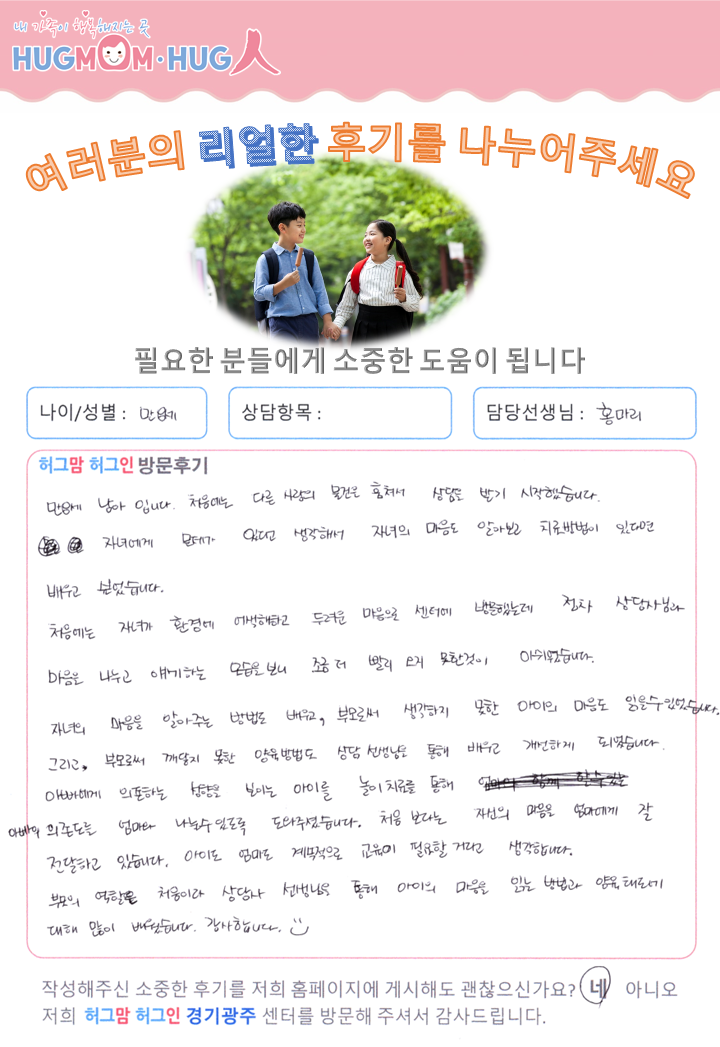 내 가족이 행복해지는 곳
HUGMOM·HUG人
여러분의 리얼한 후기를 나누어주세요
필요한 분들에게 소중한 도움이 됩니다
나이/성별 : 만8세
상담항목 :
담당선생님 : 홍마리
허그맘 허그인 방문후기
만8세 남아 입니다. 처음에는 다른 사람의 물건을 훔쳐서 상담을 받기 시작했습니다.
자녀에게 문제가 있다고 생각해서 자녀의 마음도 알아보고 치료방법이 있다면
배우고 싶었습니다.
처음에는 자녀가 환경에 어색해하고 두려운 마음으로 센터에 방문했는데 점차 상담사님과
마음을 나누고 얘기하는 모습을 보니 조금 더 빨리 오지 못한것이 아쉬웠습니다.
자녀의 마음을 알아주는 방법도 배우고, 부모로써 생각하지 못한 아이의 마음도 읽을수있었습니다.
그리고, 부모로써 깨닫지 못한 양육방법도 상담 선생님을 통해 배우고 개선하게 되었습니다.
아빠에게 의존하는 성향을 보이는 아이를 놀이치료를 통해
아빠의 의존도를 엄마와 나눌수있도록 도와주셨습니다. 처음 보다는 자신의 마음을 엄마에게 잘
전달하고 있습니다. 아이도 엄마도 계속적으로 교육이 필요할 거라고 생각합니다.
부모의 역할은 처음이라 상담사 선생님을 통해 아이의 마음을 읽는 방법과 양육태도에
대해 많이 배웠습니다. 감사합니다.
작성해주신 소중한 후기를 저희 홈페이지에 게시해도 괜찮으신가요? 네 아니오
저희 허그맘 허그인 경기광주 센터를 방문해 주셔서 감사드립니다.